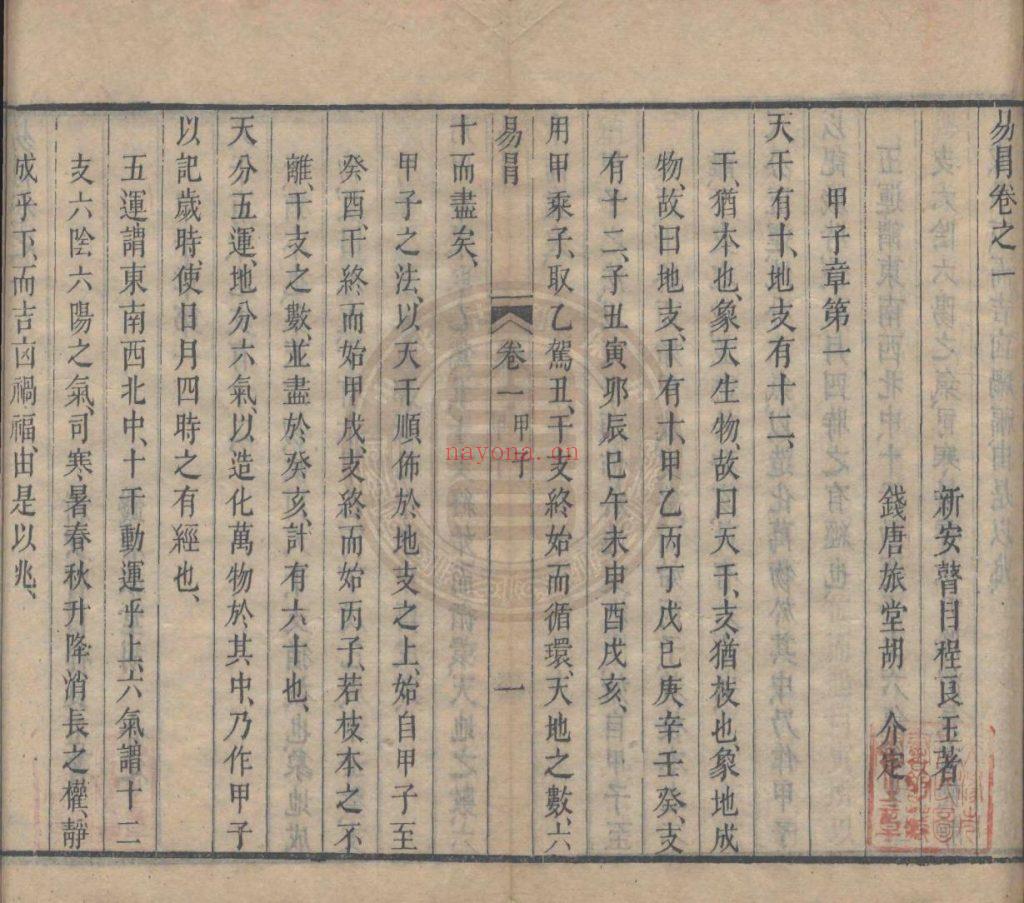 易冒卷之一
新安瞽目程良玉著
錢唐旅堂胡 介定
甲子章第一
天干有十、地支有十二、
干、猶本也、象天生物、故曰天干、支、猶枝也、象地成
物、故曰地支、干有十、甲乙丙丁戊己庚辛壬癸、支
有十二、子丑寅卯辰巳午未申酉戌亥、
用甲乘子、取乙駕丑、干支終始而循環、天地之數、六
易冒 卷一 甲子 一
十而盡矣、
甲子之法、以天干順佈於地支之上、始自甲子至
癸酉、干終而始甲戌、支終而始丙子、若枝本之不
離、干支之數、並盡於癸亥、計有六十也、
天分五運、地分六氣、以造化萬物於其中、乃作甲子
以記歲時、使日月四時之有經也、
五運謂東南西北中、十干動運乎上、六氣謂十二
支六陰六陽之氣、司寒暑春秋升降消長之權、靜
成乎下、而吉凶禍福、由是以兆、
nayona.cn